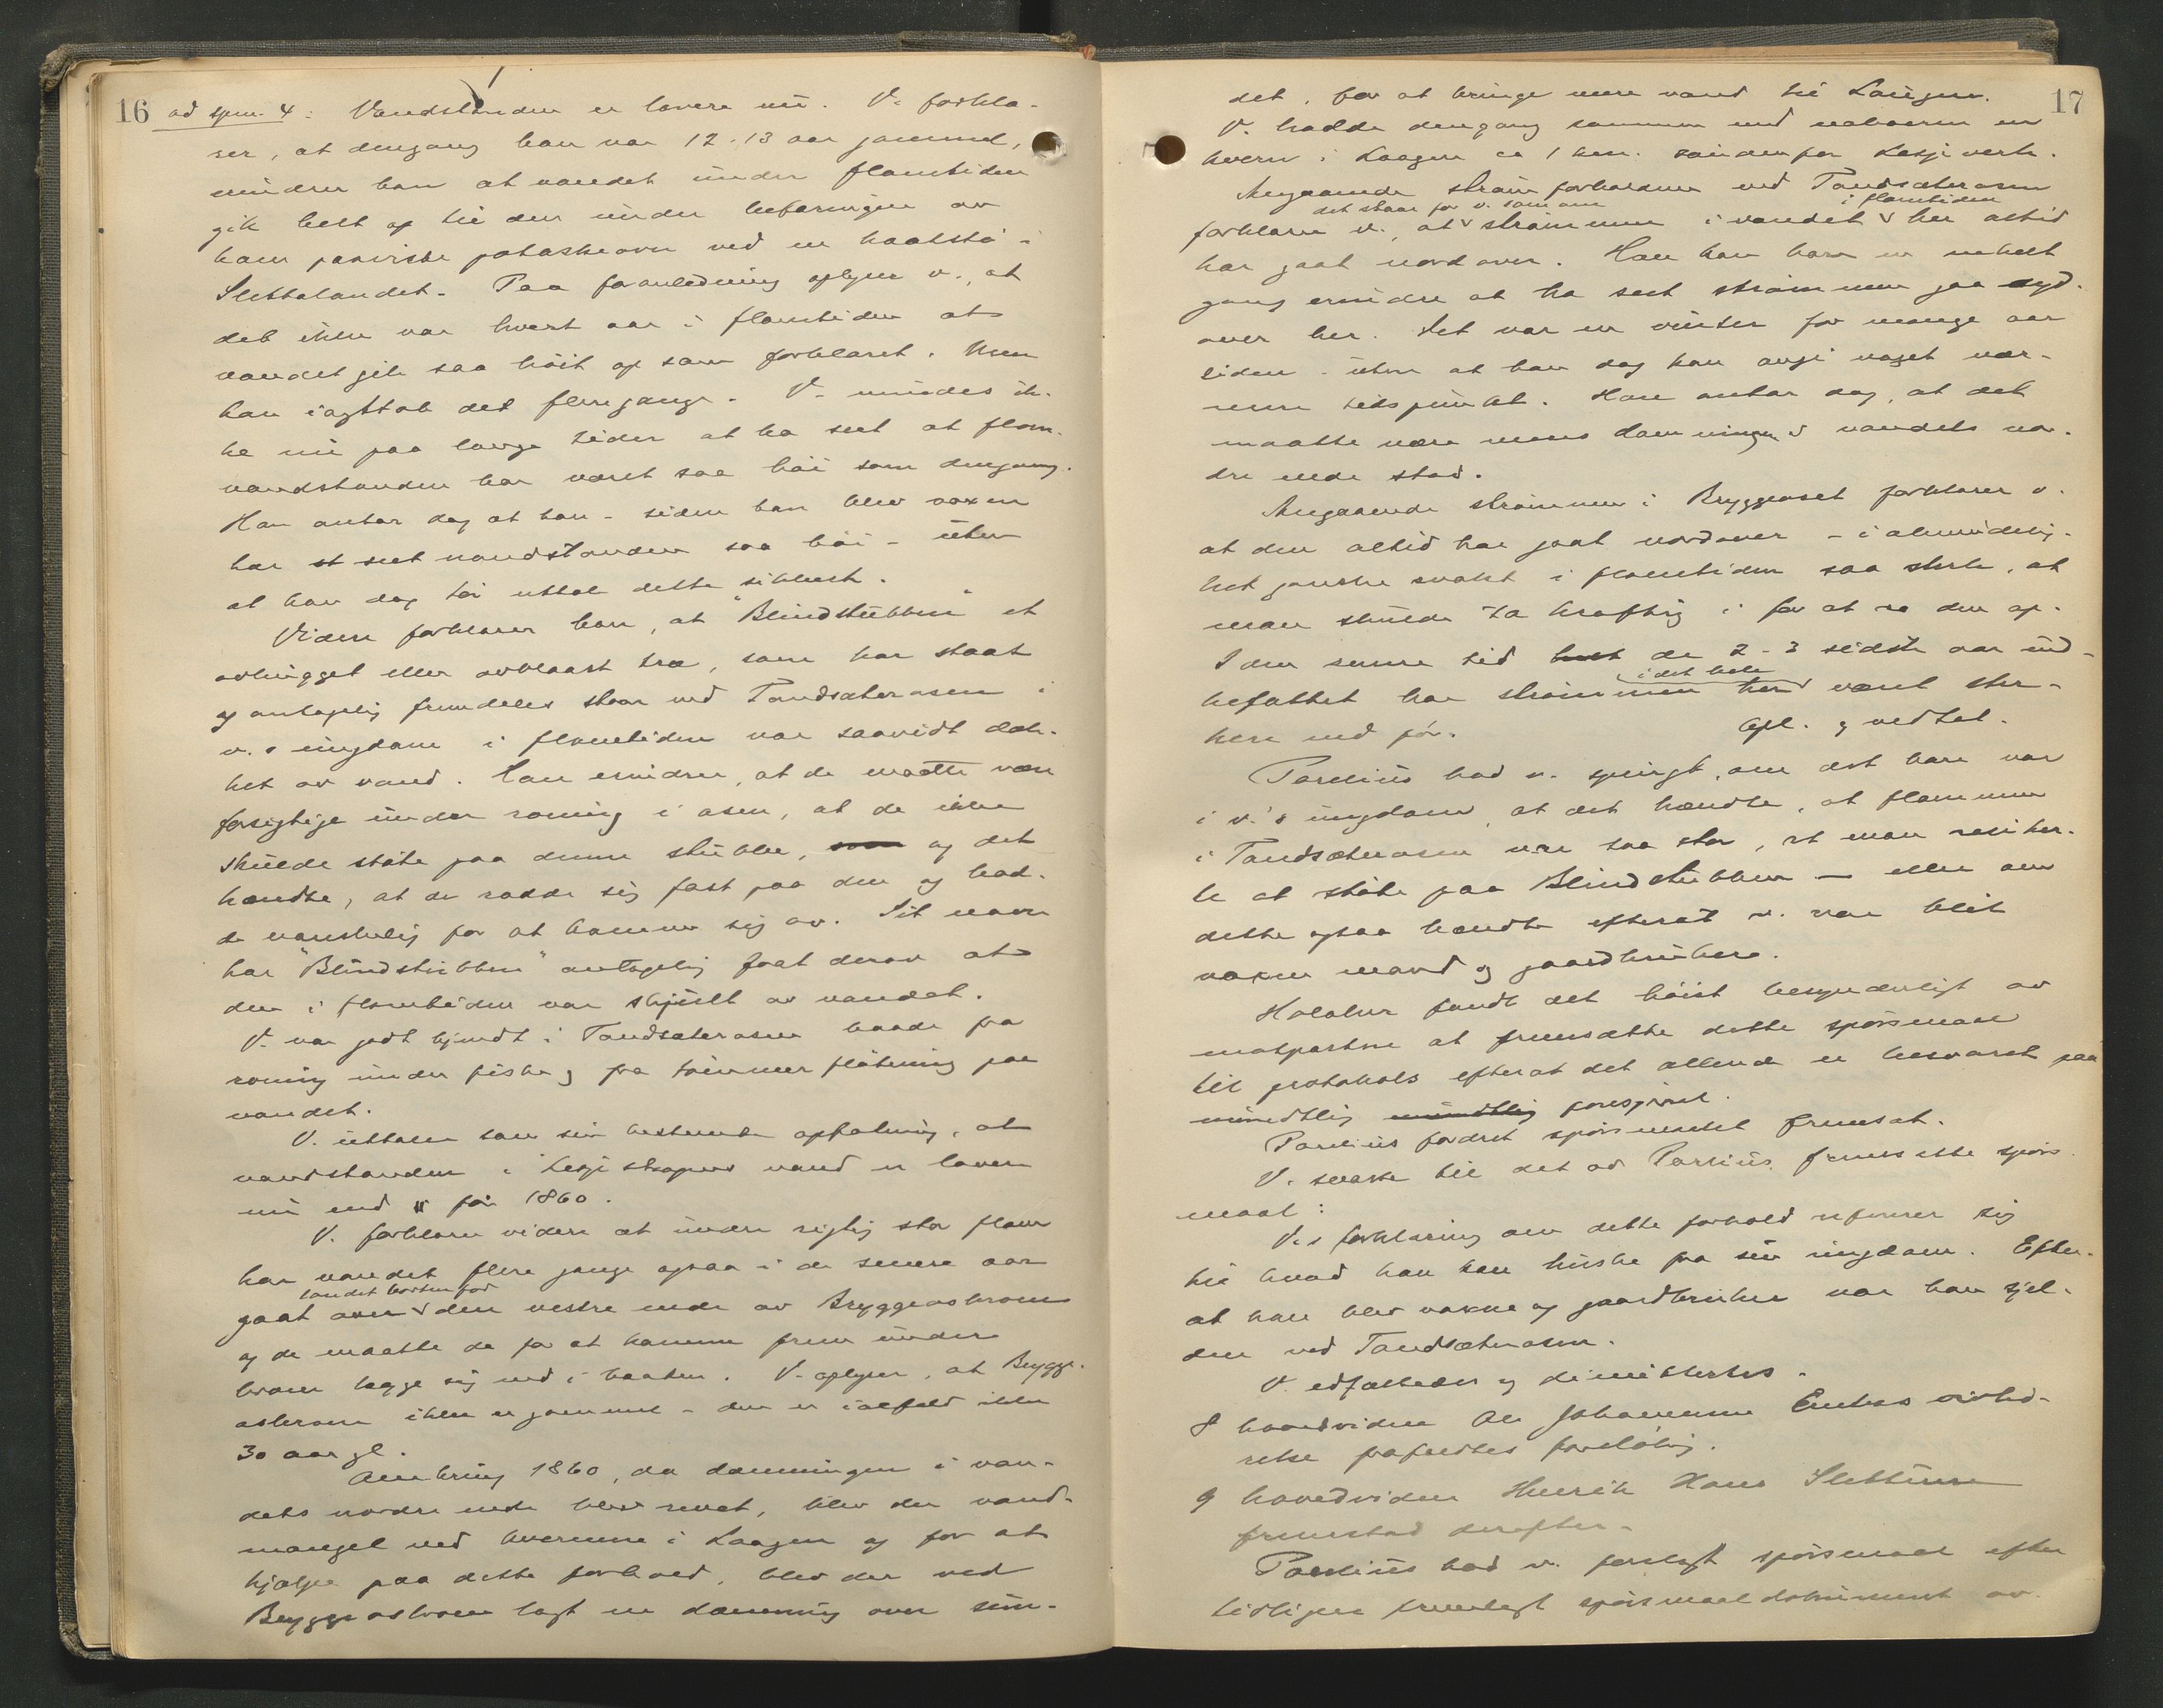 16
ad spm. 4: Vandstanden er lavere nu. V. forkla-
rer, at dengang han var 12-13 aar gammel,
mindres han at vandet under flomtiden
gik helt op til den under befaringen av
ham paaviste potaskeovn ved en baatstø i
Slettalandet. Paa foranledning oplyser v., at
det ikke var hvert aar i flomtiden at
vandet gik saa høit op som forklaret. Men
han iagttok det flere gange. V. mindes ik-
ke nu paa lange tider at ha seet at flom-
vandstanden har været saa høi som dengang.
Han antar dog at han - siden han blev voxen
har seet vandstanden saa høi - uten
at han dog tør uttale dette sikkert.
Videre forklarer han, at "Blindstubben" et
avhugget eller avblaast træ, som har staat
og antagelig fremdeles staar ved Tandsæterosen i
v.s ungdom i flomtiden var saavidt dæk-
ket av vand. Han erindrer, at de maatte være
forsigtige under roning i osen, at de ikke
skulde støte paa denne stubbe, som og det
hændte, at de rodde sig fast paa den og had-
de vanskelig for at komme sig av. Sit navn
har "Blindstubben" antagelig faat derav at
den i flomtiden var skjult av vandet.
V. var godt kjendt i Tandsæterosen baade fra
roning under fiske og fra tømmerfløtning paa
vandet.
V. uttaler som sin bestemte opfatning, at
vandstanden i Lesjeskogens vand er lavere
nu end før 1860.
V. forklarer videre at under rigtig stor flom
har vandet flere gange ogsaa i de senere aar
landet bortenfor
gaat over den vestre ende av Bryggeosbroen
og de maatte da for at komme frem under
broen lægge sig ned i baaten. V. oplyser, at Brygge-
osbroen ikke er gammel - den er ialfald ikke
30 aar gl.
Omkring 1860, da dæmningen i van-
dets nordre ende blev revet, blev der vand-
mangel ved kvernene i Laagen og for at
hjælpe paa dette forhold, blev der ved
Bryggeosbroen lagt en dæmning over sun-
17
det, for at bringe mere vand til Laugen.
V. hadde dengang sammen med naboerne en
kvern i Laagen ca 1 km. søndenfor Lesjeverk.
Angaaende strømforholdene ved Tandsæterosen
det staar for v. som om i flomtiden
forklarer v., at strømmen i vandet her altid
har gaat nordover. Han kan bare en enkelt
gang erindre at ha seet strømmen gaa syd-
over her. Det var en vinter for mange aar
siden - uten at han dog kan angi noget nær-
mere tidspunkt. Han antar dog, at det
maatte være mens dæmningen i vandets nor-
dre ende stod.
Angaaende strømmen i Bryggeoset forklarer v.
at den altid har gaat nordover - i almindelig-
het ganske svakt i flomtiden saa sterk, at
man skulde ta kraftig i for at ro den op.
I den senere tid de 2-3 sidste aar ind-
i det hele
befattet har strømmen her været ster-
kere end før. Opl. og vedtat.
Parelius bad v. spurgt, om det bare var
i v.'s ungdom, at det hændte, at flommen
i Tandsæterosen var saa stor, at man resiker-
te at støte paa Blindstubben — eller om
dette ogsaa hændte efterat v. var blit
voksen mand og gaardbruker.
Holaker fandt det høist besynderligt av
motparten at fremsætte dette spørsmaal
til protokols efterat det allerede er besvaret paa
mundtlig mundtlig forespørsel.
Parelius fordret spørsmaalet fremsat.
V. svarte til det av Parelius fremsatte spørs-
maal:
V.s forklaring om dette forhold refererer sig
til hvad han kan huske fra sin ungdom. Efter-
at han blev voksen og gaardbruker var han sjel-
den ved Tandsæterosen.
V. edfæstedes og dimitteredes.
8 hovedvidne Ole Johannesen Enebos vidned-
relse frafaldtes foreløbig.
9 hovedvidne Henrik Hans Slettum
fremstod derefter.
Parelius bad v. forelagt spørsmaal efter
tidligere fremlagt spørsmaalsdokument av